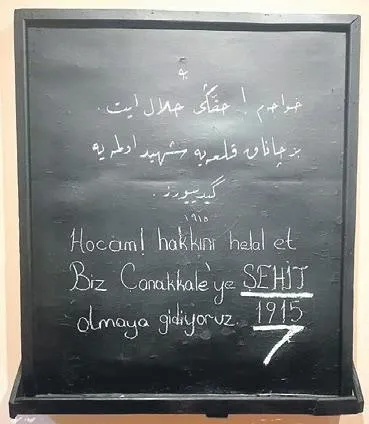 خواجه‌م! حقّڭی حلال ایت.
بز چاناق قلعه‌یه شهید اولمه‌یه
گیدییورز.
١٩١٥
Hocam! hakkını helal et
Biz Çanakkale'ye ŞEHİT
olmaya gidiyoruz. 1915